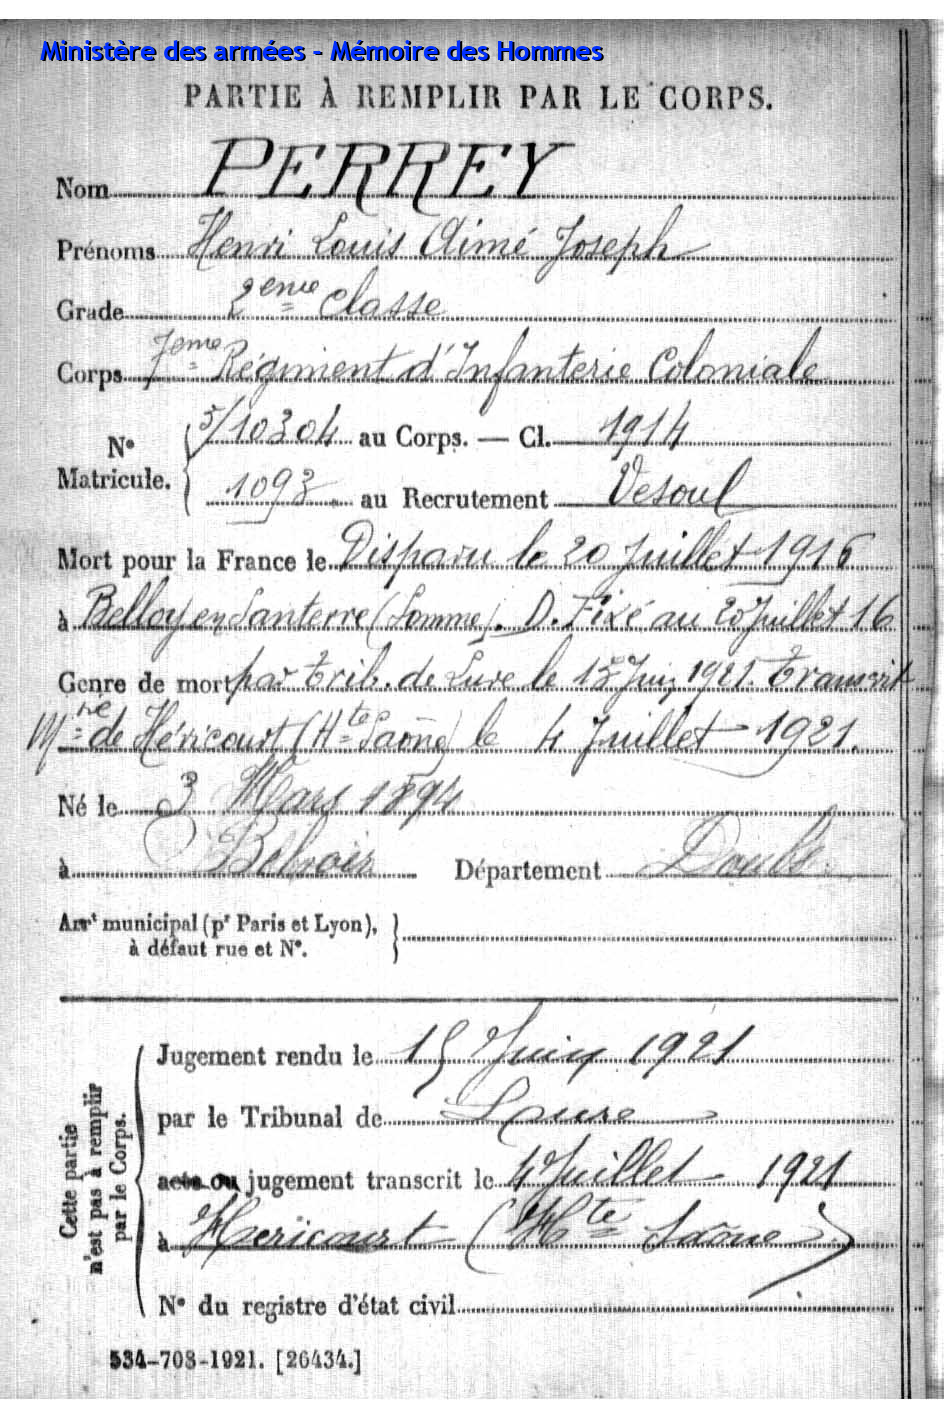 Ministère des armées - Mémoire des Hommes
PARTIE À REMPLIR PAR LE CORPS.
Nom PERREY
Prénoms Henri Louis Aimé Joseph
Grade 2eme classe
Corps 7eme Régiment d'Infanterie Coloniale
N° Matricule. { 5/10304 au Corps. — Cl. 1914
1093 au Recrutement Vesoul
Mort pour la France le Disparu le 20 Juillet 1916
à Belloy en Santerre (Somme). D. Fixé au 20 Juillet 16
Genre de mort par Trib. de Lure le 15 Juin 1921. Transcrit
Mrie de Héricourt (Hte Saône) le 4 Juillet 1921.
Né le 3 Mars 1894
à Belvoir Département Doubs.
Arrt municipal (pr Paris et Lyon),
à défaut rue et N°. }
Cette partie
n'est pas à remplir
par le Corps.
Jugement rendu le 15 Juin 1921
par le Tribunal de Lure
acte ou jugement transcrit le 4 Juillet 1921
à Héricourt (Hte Saône)
N° du registre d'état civil
534-708-1921. [26434.]